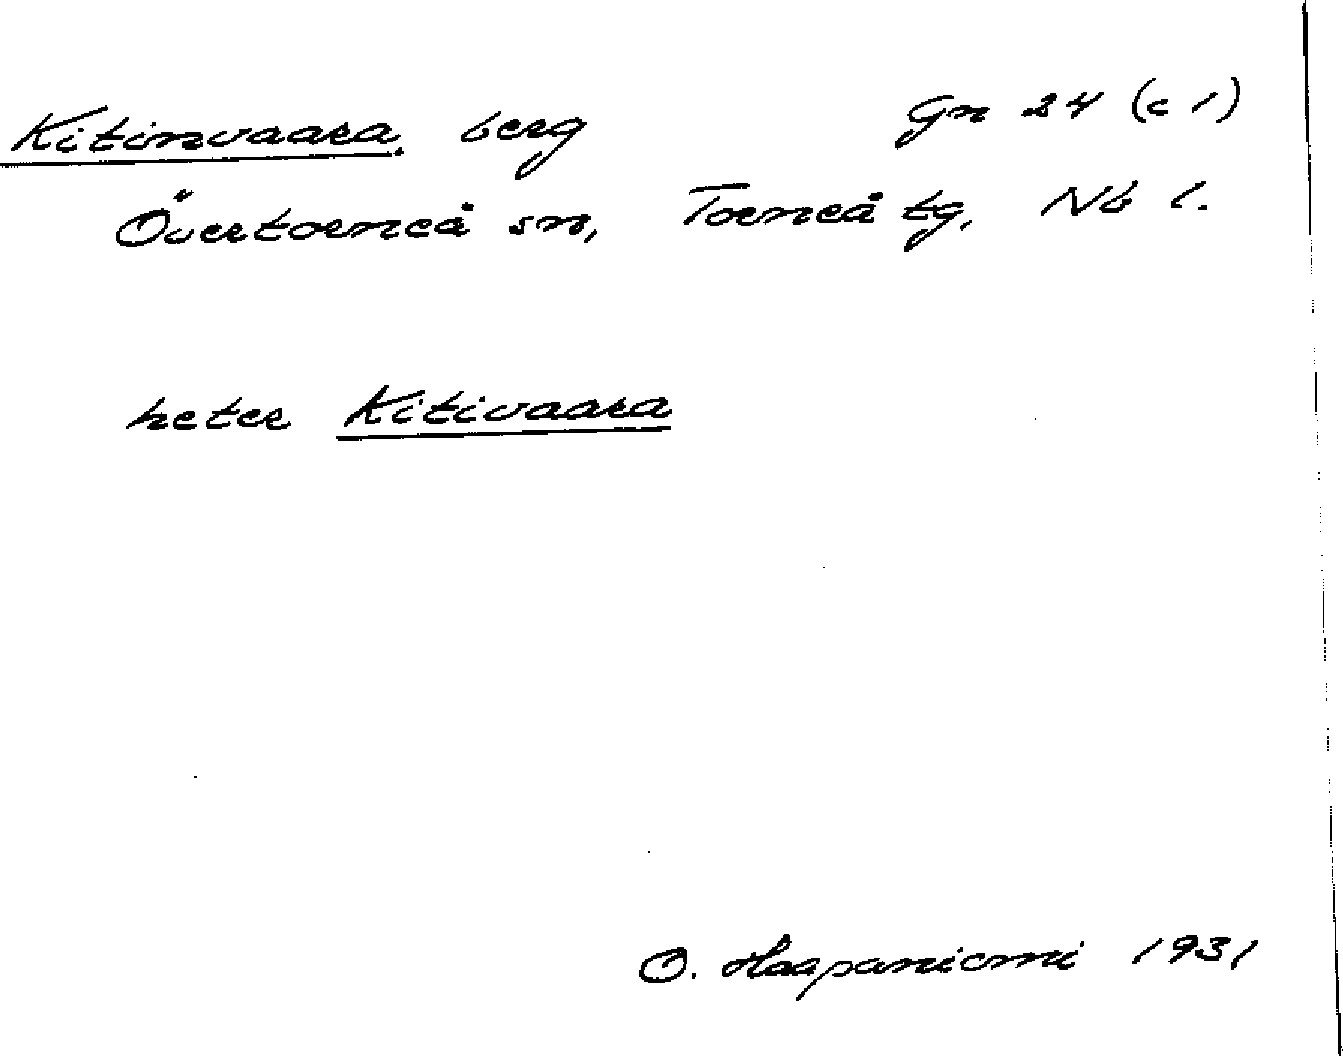 Kitinvaara, berg Gn 24 (c 1)
Övertorneå sn, Torneå tg, Nb l.
heter Kitivaara
O. Haapaniemi 1931